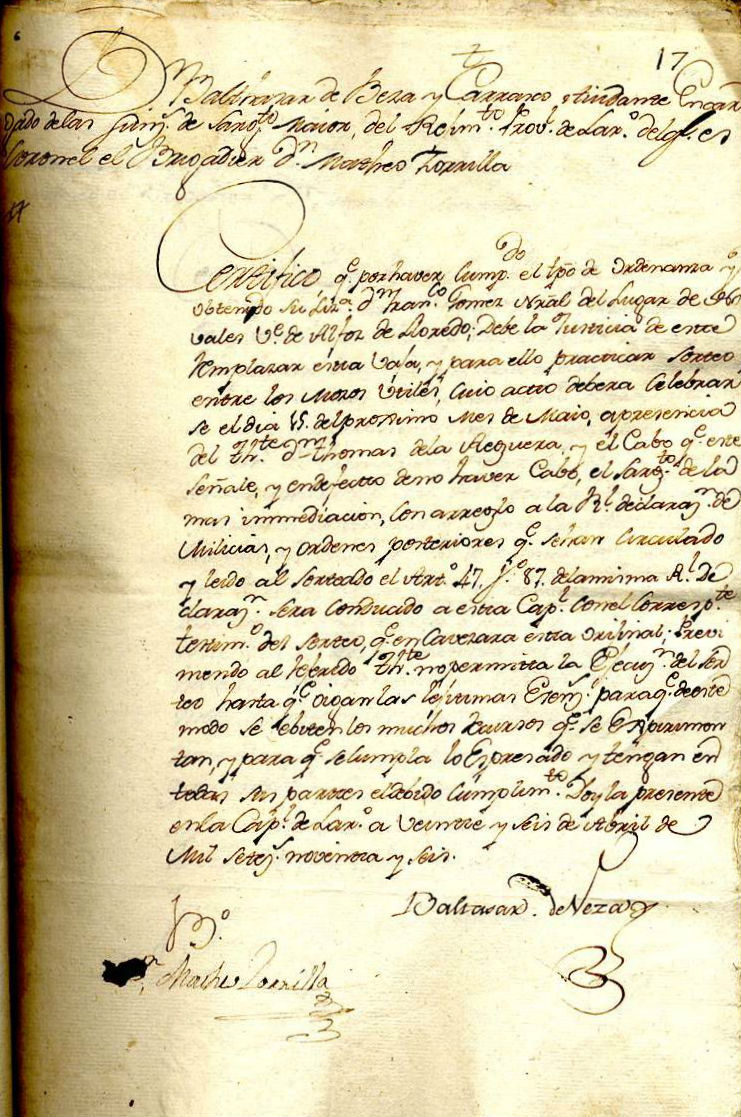 17
Dn Baltasar de Beza y Carrasco Aiudante Encar
gado de las funs. de Sargto. Maior, del Rexmto. Provl. de Laro. del ql. es
Coronel el Brigadier dn. Matheo Zorrilla
Certifico qe. por haver Cumpdo. el tpo de Ordenanza y
obtenido su Liza. dn Franco Gomez Nral del Lugar de
vales Vo. de Alfoz de Lloredo; Debe la Justicia de este
Remplazar esta Vaca, y para ello practicar Sorteo
entre los Mozos Utiles, Cuio acto debera Celebrar
se el dia 15. del prossimo Mes de Maio, a presencia
del Thte. dn Thomas de la Reguera, y el Cabo qe. este
Señale, y en defectto de no haver Cabo, el Sargto. de la
mas inmediacion, Con arreglo a la Rl. declarazn. de
Milicias, y ordenes posteriores qe. se han Circulado
y leido al Sorteado el Arto. 47. fo. 87. de la misma Rl. De
clarazn. sera Conducido a esta Capl. Con el Correspte.
testimo. del Sorteo, qe. en Cavezara esta Orilinal; Previ
niendo al Referido Thte. no permitta la Ejecuzn. del Sor
teo hasta qe. oigan las lejitimas Exenss. para qe. de este
modo se ebiten los muchos Recursos qe. se Experimen
tan, y para qe. se Cumpla lo Espresado y tengan en
todas sus partes el debido Cumplimto. Doy la presente
en la Capl. de Laro. a Veinte y seis de Abril de
Mil Setess. noventa y seis.
Baltasar de Veza y
Vo. Bo.
Matheo Zorrilla